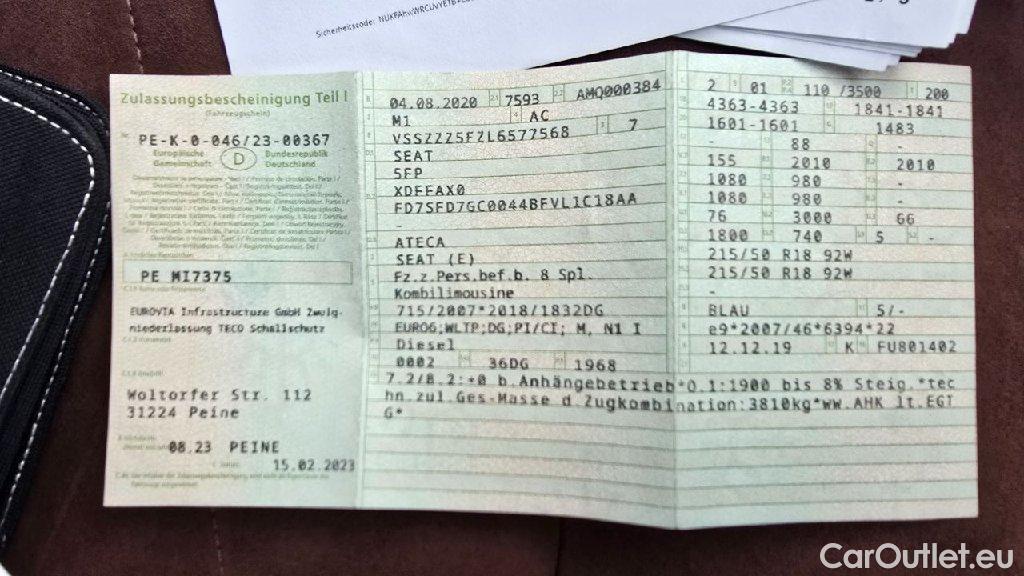 Sicherheitscode:
Zulassungsbescheinigung Teil I
(Fahrzeugschein)
PE-K-0-046/23-00367
Europäische Gemeinschaft
D
Bundesrepublik Deutschland
PE MI7375
EUROVIA Infrastructure GmbH Zweig-
niederlassung TECO Schallschutz
Woltorfer Str. 112
31224 Peine
08.23 PEINE
15.02.2023
04.08.2020 7593 AMQ000384
M1 AC
VSSZZZ5FZL6577568 7
SEAT
5FP
XDFFAX0
FD7SFD7GC0044BFVL1C18AA
-
ATECA
SEAT (E)
Fz.z.Pers.bef.b. 8 Spl.
Kombilimousine
715/2007*2018/1832DG
EURO6;WLTP;DG;PI/CI; M, N1 I
Diesel
0002 36DG 1968
2 01 110 /3500 200
4363-4363 1841-1841
1601-1601 1483
- 88 -
155 2010 2010
1080 980 -
1080 980 -
76 3000 66
1800 740 5 -
215/50 R18 92W
215/50 R18 92W
-
BLAU 5/-
e9*2007/46*6394*22
12.12.19 K FU801402
7.2/8.2:+0 b.Anhängebetrieb*O.1:1900 bis 8% Steig.*tec
hn.zul.Ges-Masse d.Zugkombination:3810kg*ww.AHK lt.EGT
G*
CarOutlet.eu